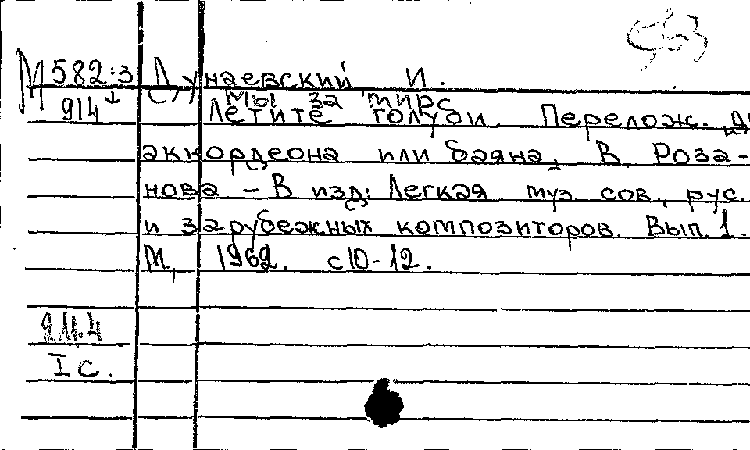 М 582:3 Дунаевский И.
Мы за мир
9/4 Летите голуби. Перелож. для
аккордеона или баяна, В. Роза-
нова - В изд: Легкая муз сов, рус.
и зарубежных композиторов. Вып. 1.
М, 1962. с10-12.
9.11.4
I с.